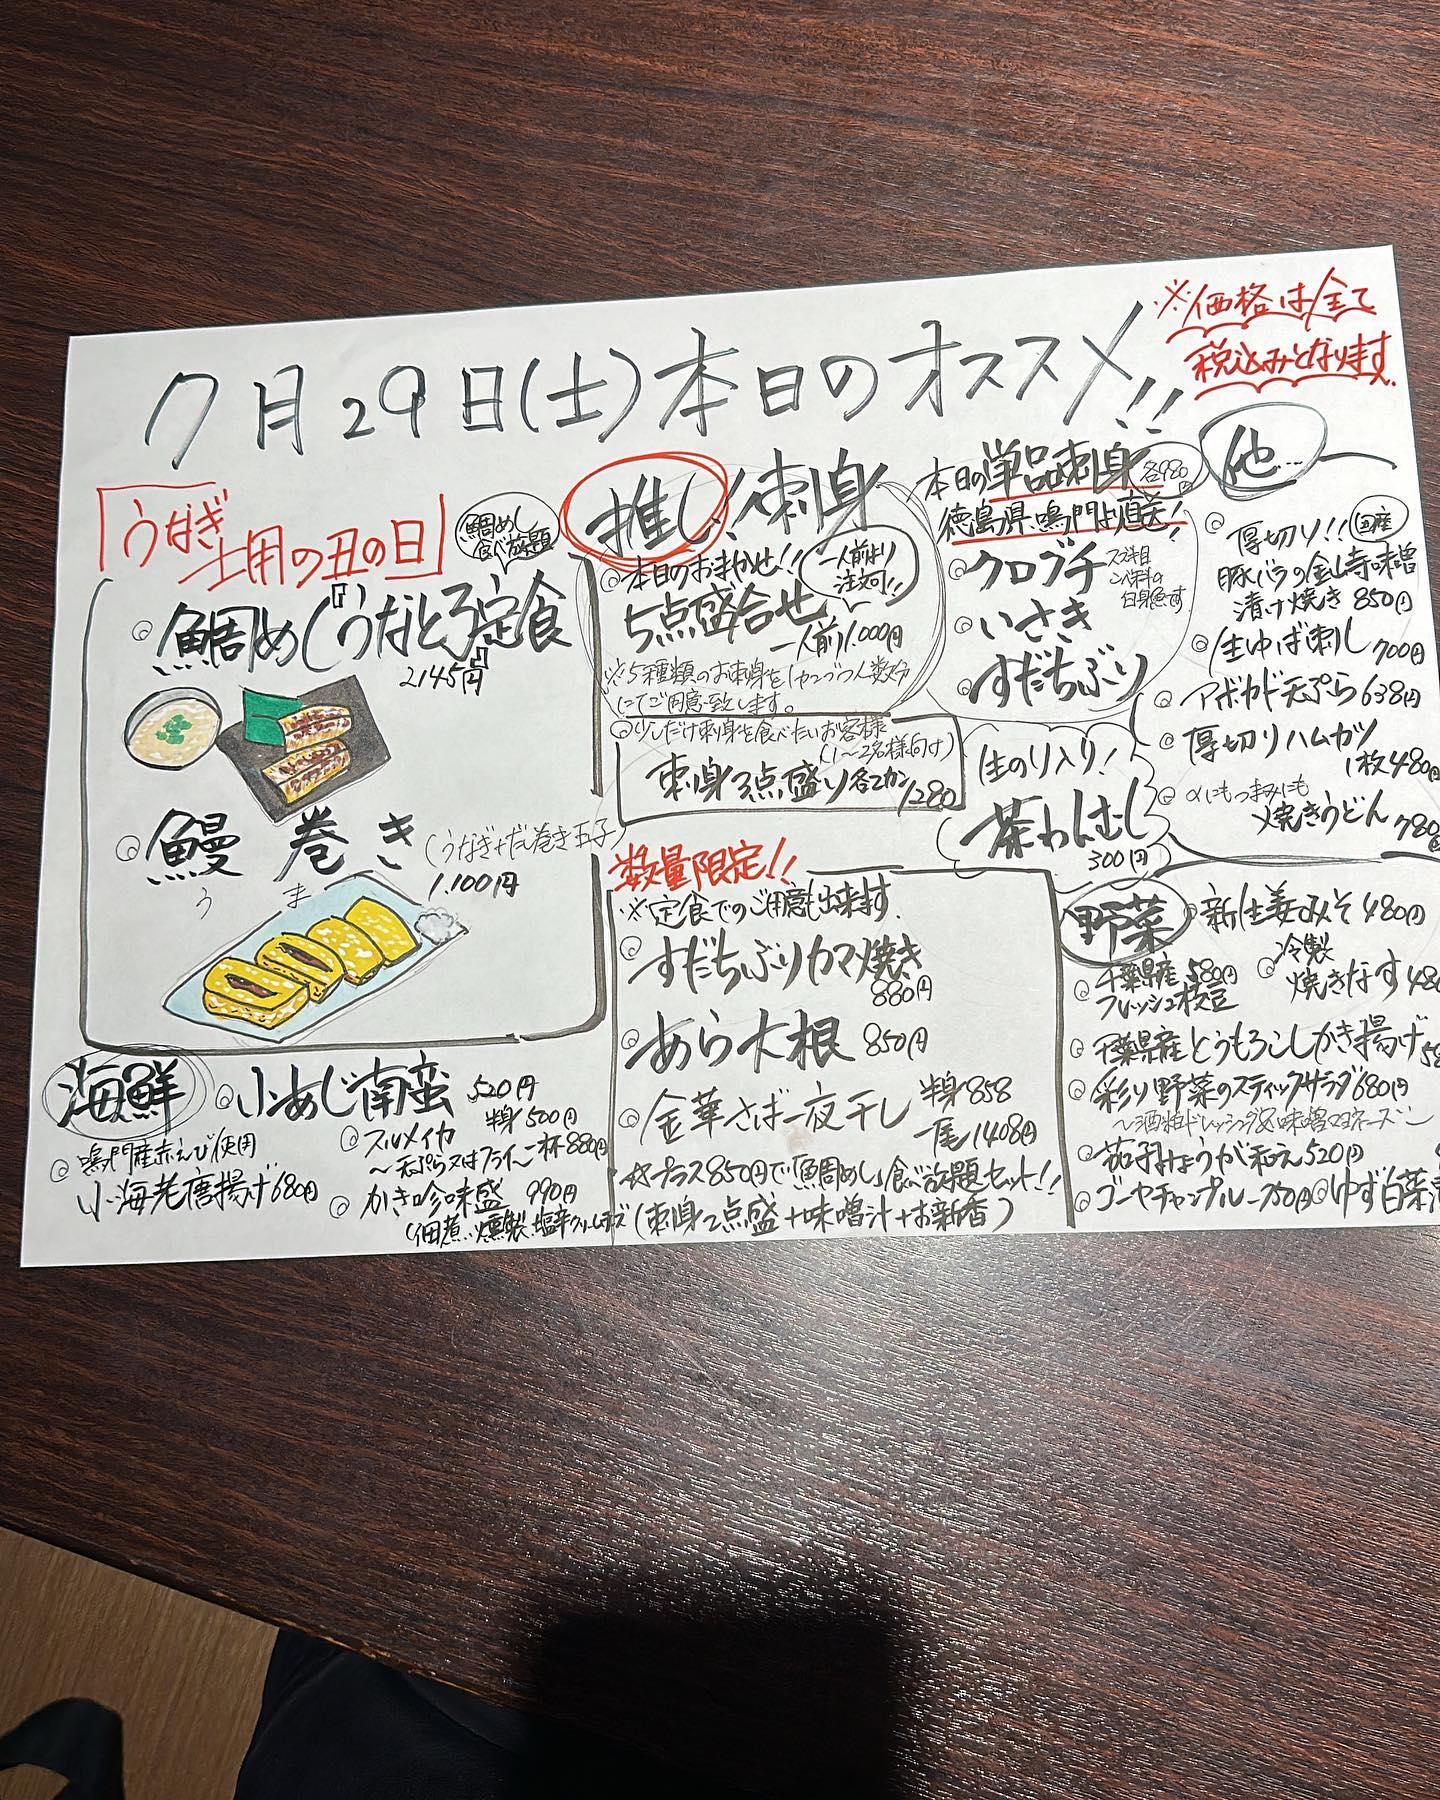 7月29日(土)本日のオススメ!!
※価格は全て
税込みとなります。
「うなぎ
土用の丑の日」
鯛めし
食べ放題
鯛めし『うなとろ定食』
2145円
鰻巻き
う ま
(うなぎ+だし巻き玉子)
1.100円
推し!刺身
本日のおまかせ!!
5点盛合せ
一人前より
注文可!!
一人前1.000円
※5種類のお刺身を1カンづつ人数分
にてご用意致します。
少しだけ刺身を食べたいお客様
(1〜2名様向け)
刺身3点盛り各2カン1280
本日の単品刺身 各980円
徳島県、鳴門より直送!
クロブチ
スズキ目
ニベ科の
白身魚です
いさき
すだちぶり
生のり入り!
茶わんむし
300円
他…
厚切り!! 国産
豚バラの金山寺味噌
漬け焼き 850円
生ゆば刺し 700円
アボカド天ぷら638円
厚切りハムカツ
1枚480円
〆にもつまみにも
焼きうどん 780円
数量限定!!
※定食でのご用意も出来ます。
すだちぶりカマ焼き
880円
あら大根 850円
金華さば一夜干し 半身858
一尾1408円
☆プラス850円で「鯛めし」食べ放題セット!!
(刺身2点盛+味噌汁+お新香)
野菜
新生姜みそ480円
千葉県産 580円
フレッシュ枝豆
冷製
焼きなす480
千葉県産とうもろこしかき揚げ
彩り野菜のスティックサラダ680円
〜酒粕ドレッシング&味噌マヨネーズ〜
茄子みょうが和え520円
ゴーヤチャンプルー750円
ゆず白菜
海鮮
小あじ南蛮 520円
鳴門産赤えび使用
小海老唐揚げ680円
スルメイカ 半身500円
〜天ぷら又はフライ〜一杯880円
かき珍味盛 990円
(佃煮、燻製、塩辛クリームチーズ)